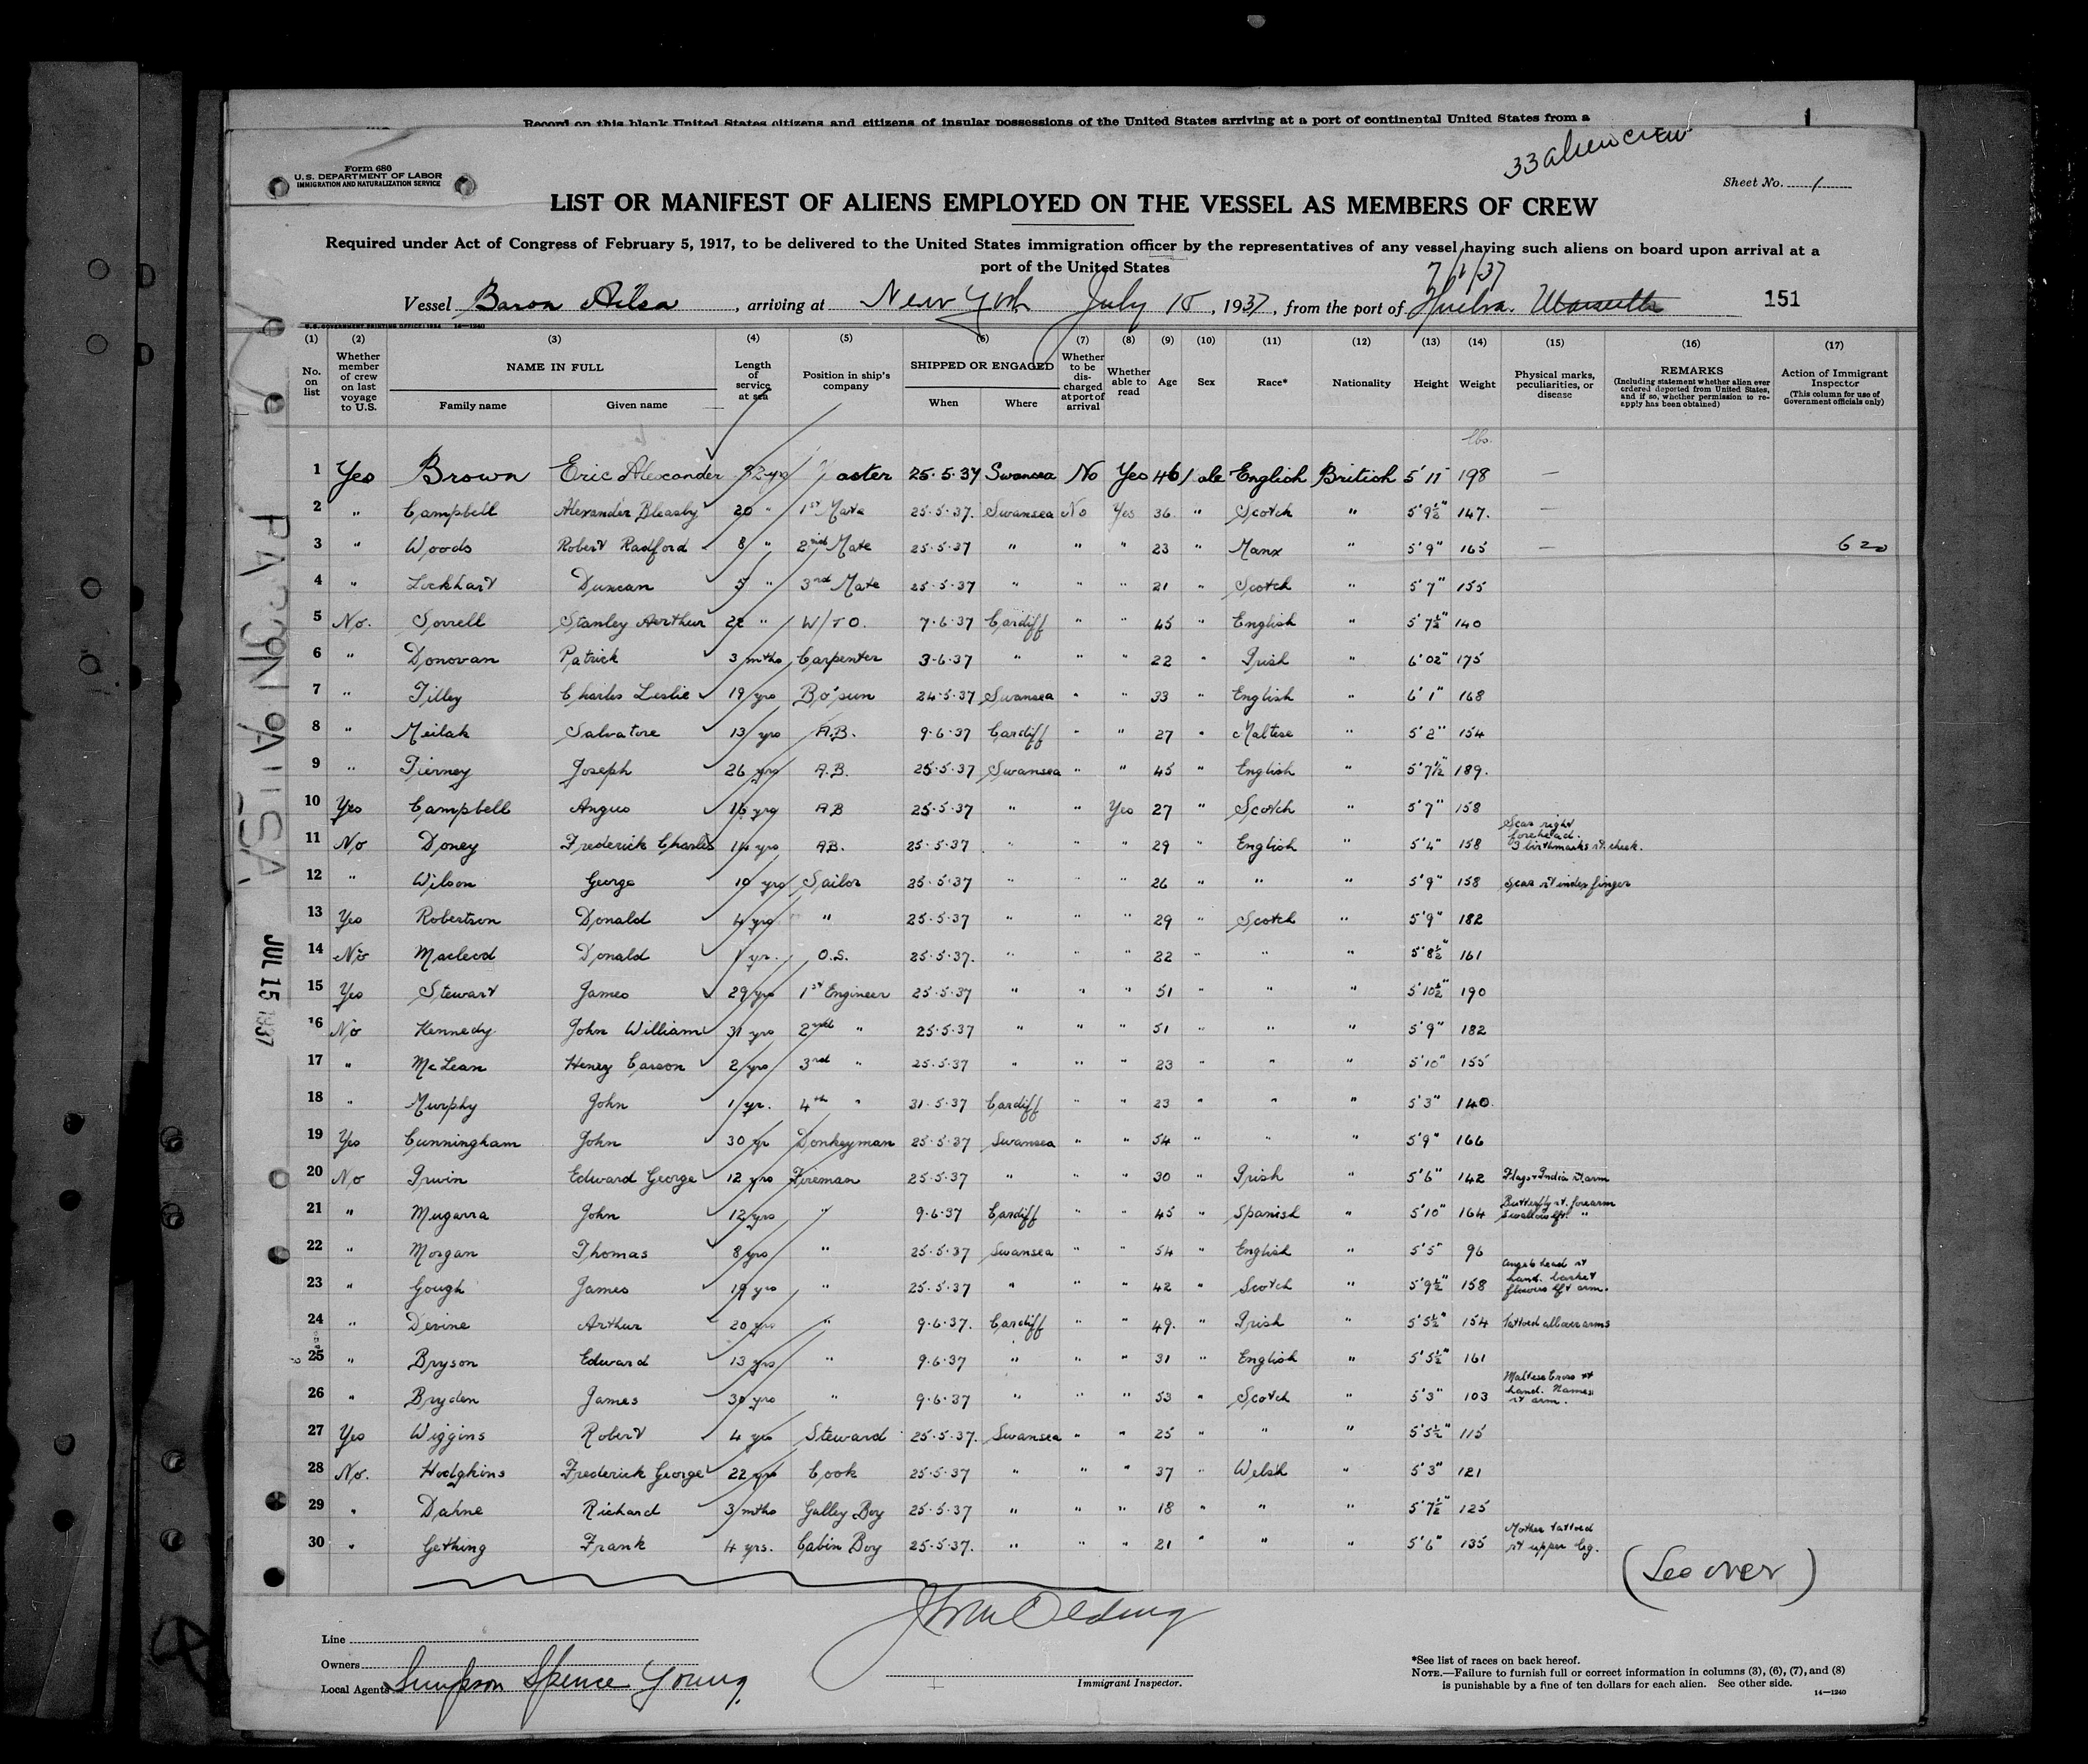 Record on this blank United States citizens and citizens of insular possessions of the United States arriving at a port of continental United States from a
1
33 alien crew
Form 680
U.S. DEPARTMENT OF LABOR
IMMIGRATION AND NATURALIZATION SERVICE
Sheet No. 1
LIST OR MANIFEST OF ALIENS EMPLOYED ON THE VESSEL AS MEMBERS OF CREW
Required under Act of Congress of February 5, 1917, to be delivered to the United States immigration officer by the representatives of any vessel having such aliens on board upon arrival at a
port of the United States
7/1/37
Vessel Baron Ailsa, arriving at New York July 15, 1937, from the port of Huelva. 151
U.S. GOVERNMENT PRINTING OFFICE: 1934 14—1240
(1) (2) (3) (4) (5) (6) (7) (8) (9) (10) (11) (12) (13) (14) (15) (16) (17)
No. on list Whether member of crew on last voyage to U.S. NAME IN FULL Family name Given name Length of service at sea Position in ship's company SHIPPED OR ENGAGED When Where Whether to be discharged at port of arrival Whether able to read Age Sex Race* Nationality Height Weight Physical marks, peculiarities, or disease REMARKS (Including statement whether alien ever ordered deported from United States, and if so, whether permission to re-apply has been obtained) Action of Immigrant Inspector (This column for use of Government officials only)
lbs.
1 Yes Brown Eric Alexander 32 yrs Master 25.5.37 Swansea No Yes 46 Male English British 5'11 198 —
2 " Campbell Alexander Bleasby 20 " 1st Mate 25.5.37. Swansea No Yes 36 " Scotch " 5'9½" 147. —
3 " Woods Robert Radford 8 " 2nd Mate 25.5.37 " " " 23 " Manx " 5'9" 165 — 620
4 " Lockhart Duncan 5 " 3rd Mate 25.5.37 " " " 21 " Scotch " 5'7" 155
5 No. Sorrell Stanley Aerthur 22 " W/TO. 7.6.37 Cardiff " " 45 " English " 5'7½" 140
6 " Donovan Patrick 3 mths Carpenter 3.6.37 " " " 22 " Irish " 6'02" 175
7 " Tilley Charles Leslie 19 yrs Bo'sun 24.5.37 Swansea " " 33 " English " 6'1" 168
8 " Meilak Salvatore 13 yrs A.B. 9.6.37 Cardiff " " 27 " Maltese " 5'2" 154
9 " Tierney Joseph 26 yrs A.B. 25.5.37 Swansea " " 45 " English " 5'7½" 189.
10 Yes Campbell Angus 16 yrs A.B 25.5.37 " " Yes 27 " Scotch " 5'7" 158
11 No Doney Frederick Charles 14 yrs A.B. 25.5.37 " " " 29 " English " 5'4" 158 Scar right forehead. 3 birthmarks rt. cheek.
12 " Wilson George 10 yrs Sailor 25.5.37 " " " 26 " " " 5'9" 158 Scar rt index finger
13 Yes Robertson Donald 4 yrs " 25.5.37 " " " 29 " Scotch " 5'9" 182
14 No Macleod Donald 1 yr. O.S. 25.5.37. " " " 22 " " " 5'8½" 161
15 Yes Stewart James 29 yrs 1st Engineer 25.5.37 " " " 51 " " " 5'10½" 190
16 No Kennedy John William 31 yrs 2nd " 25.5.37 " " " 51 " " " 5'9" 182
17 " McLean Henry Carson 2 yrs 3rd " 25.5.37 " " " 23 " " " 5'10" 155
18 " Murphy John 1 yr. 4th " 31.5.37 Cardiff " " 23 " " " 5'3" 140.
19 Yes Cunningham John 30 yr Donkeyman 25.5.37 Swansea " " 54 " " " 5'9" 166
20 No Irwin Edward George 12 yrs Fireman 25.5.37 " " " 30 " Irish " 5'6" 142 Flags & India rt. arm
21 " Mugarra John 12 yrs " 9.6.37 Cardiff " " 45 " Spanish " 5'10" 164 Butterfly rt. forearm Swallow lft. "
22 " Morgan Thomas 8 yrs " 25.5.37 Swansea " " 54 " English " 5'5" 96
23 " Gough James 19 yrs " 25.5.37 " " " 42 " Scotch " 5'9½" 158 Angels head rt hand. basket flowers lft arm.
24 " Devine Arthur 20 yrs " 9.6.37. Cardiff " " 49. " Irish " 5'5½" 154 tattoed all over arms
25 " Bryson Edward 13 yrs " 9.6.37 " " " 31 " English " 5'5½" 161
26 " Bryden James 30 yrs " 9.6.37 " " " 53 " Scotch " 5'3" 103 Maltese Cross rt hand. Names rt arm.
27 Yes Wiggins Robert 4 yrs Steward 25.5.37. Swansea " " 25 " " " 5'5½" 115
28 No. Hodgkins Frederick George 22 yrs Cook 25.5.37 " " " 37 " Welsh " 5'3" 121
29 " Dahne Richard 3 mths Galley Boy 25.5.37 " " " 18 " " " 5'7½" 125
30 " Gething Frank 4 yrs. Cabin Boy 25.5.37. " " " 21 " " " 5'6" 135 Mother tattoed rt upper leg.
(See over)
BARON AILSA
JUL 15 1937
Line
Owners
Local Agents Simpson Spence Young
Immigrant Inspector.
*See list of races on back hereof.
NOTE.—Failure to furnish full or correct information in columns (3), (6), (7), and (8)
is punishable by a fine of ten dollars for each alien. See other side.
14—1240